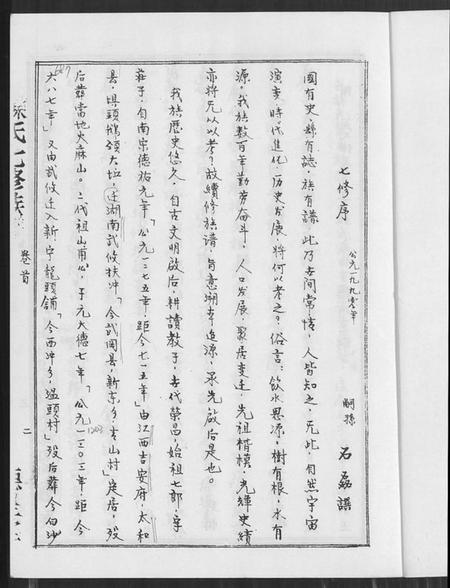 七修序
公元一九九零年
嗣孫 石磊謨
國有史,縣有誌,族有譜,此乃世间常情,人皆知之,无此,自然宇宙
演变,時代進化,历史发展,將何以考之?俗言:飲水思源,樹有根,水有
源,我族数百年勤劳奋斗!人口发展,聚居变迁,先祖楷模,光輝史績
亦将无从以考?故續修族谱,旨意溯本追源,承先啟后是也。
我族歷史悠久,自古文明啟后,耕讀教子,古代榮昌,始祖七郎,字
莊子,自南宗德祐元年「公元一二七五年:距今七一五年」由江西吉安府,太和
县,埧頭鵝頸大坵,迁湖南武攸扶冲「今武岡县,新京乡,吉山村」定居,殁
后葬當地火麻山。二代祖山甫公,于元大德七年「公元一三〇三年:距今
1303
六八七年」又由武攸迁入新宁龍頭鋪「今西冲乡,温頭村」殁后葬今白沙
687
七修族
卷首
二